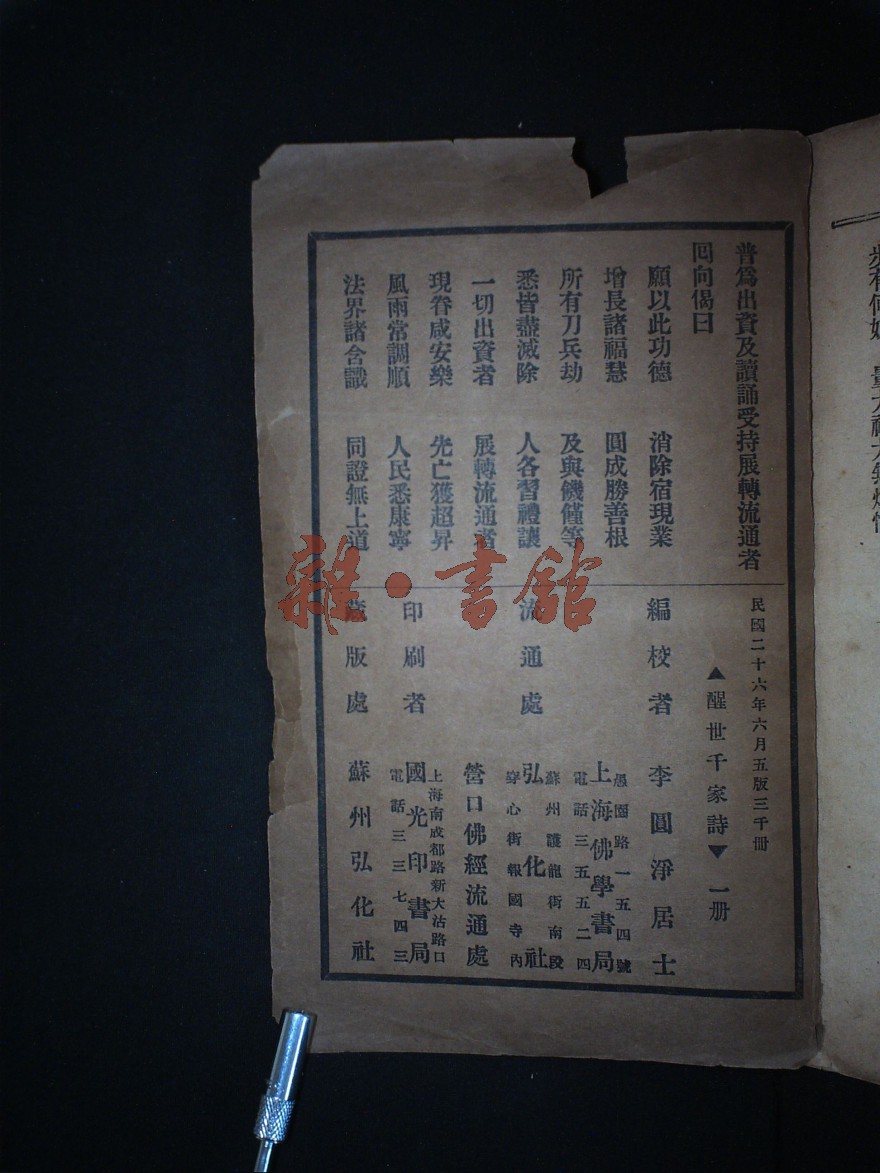 普爲出資及讀誦受持展轉流通者
回向偈曰
願以此功德　消除宿現業
增長諸福慧　圓成勝善根
所有刀兵劫　及與饑饉等
悉皆盡滅除　人各習禮讓
一切出資者　展轉流通者
現眷咸安樂　先亡獲超昇
風雨常調順　人民悉康寧
法界諸含識　同證無上道
民國二十六年六月五版三千冊
▲醒世千家詩▼　一册
編校者　李圓淨居士
愚園路一五四號
上海佛學書局
電話三五五二四
流通處
蘇州護龍街南段
弘化社
穿心街報國寺內
營口佛經流通處
上海南成都路新大沽路口
印刷者　國光印書局
電話三三七四三
藏版處　蘇州弘化社
雜·書館